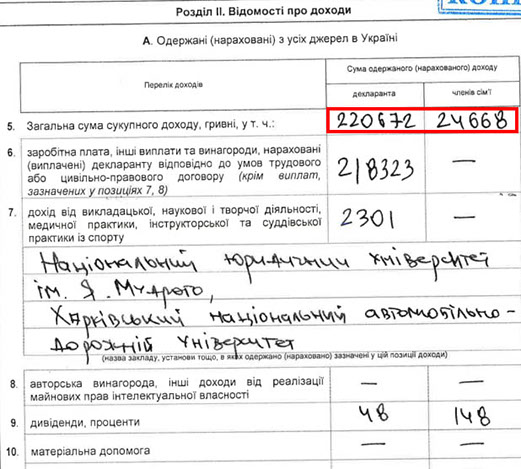 Розділ II. Відомості про доходи
А. Одержані (нараховані) з усіх джерел в Україні
Перелік доходів
Сума одержаного (нарахованого) доходу
декларанта
членів сім'ї
5. Загальна сума сукупного доходу, гривні, у т. ч.: 220672 24668
6. заробітна плата, інші виплати та винагороди, нараховані
(виплачені) декларанту відповідно до умов трудового
або цивільно-правового договору (крім виплат,
зазначених у позиціях 7, 8)
218323 —
7. дохід від викладацької, наукової і творчої діяльності,
медичної практики, інструкторської та суддівської
практики із спорту
2301 —
Національний юридичний університет
ім. Я. Мудрого,
Харківський національний автомобільно-
дорожній університет
(назва закладу, установи тощо, в яких одержано (нараховано) зазначені у цій позиції доходи)
8. авторська винагорода, інші доходи від реалізації
майнових прав інтелектуальної власності
— —
9. дивіденди, проценти 48 148
10. матеріальна допомога — —